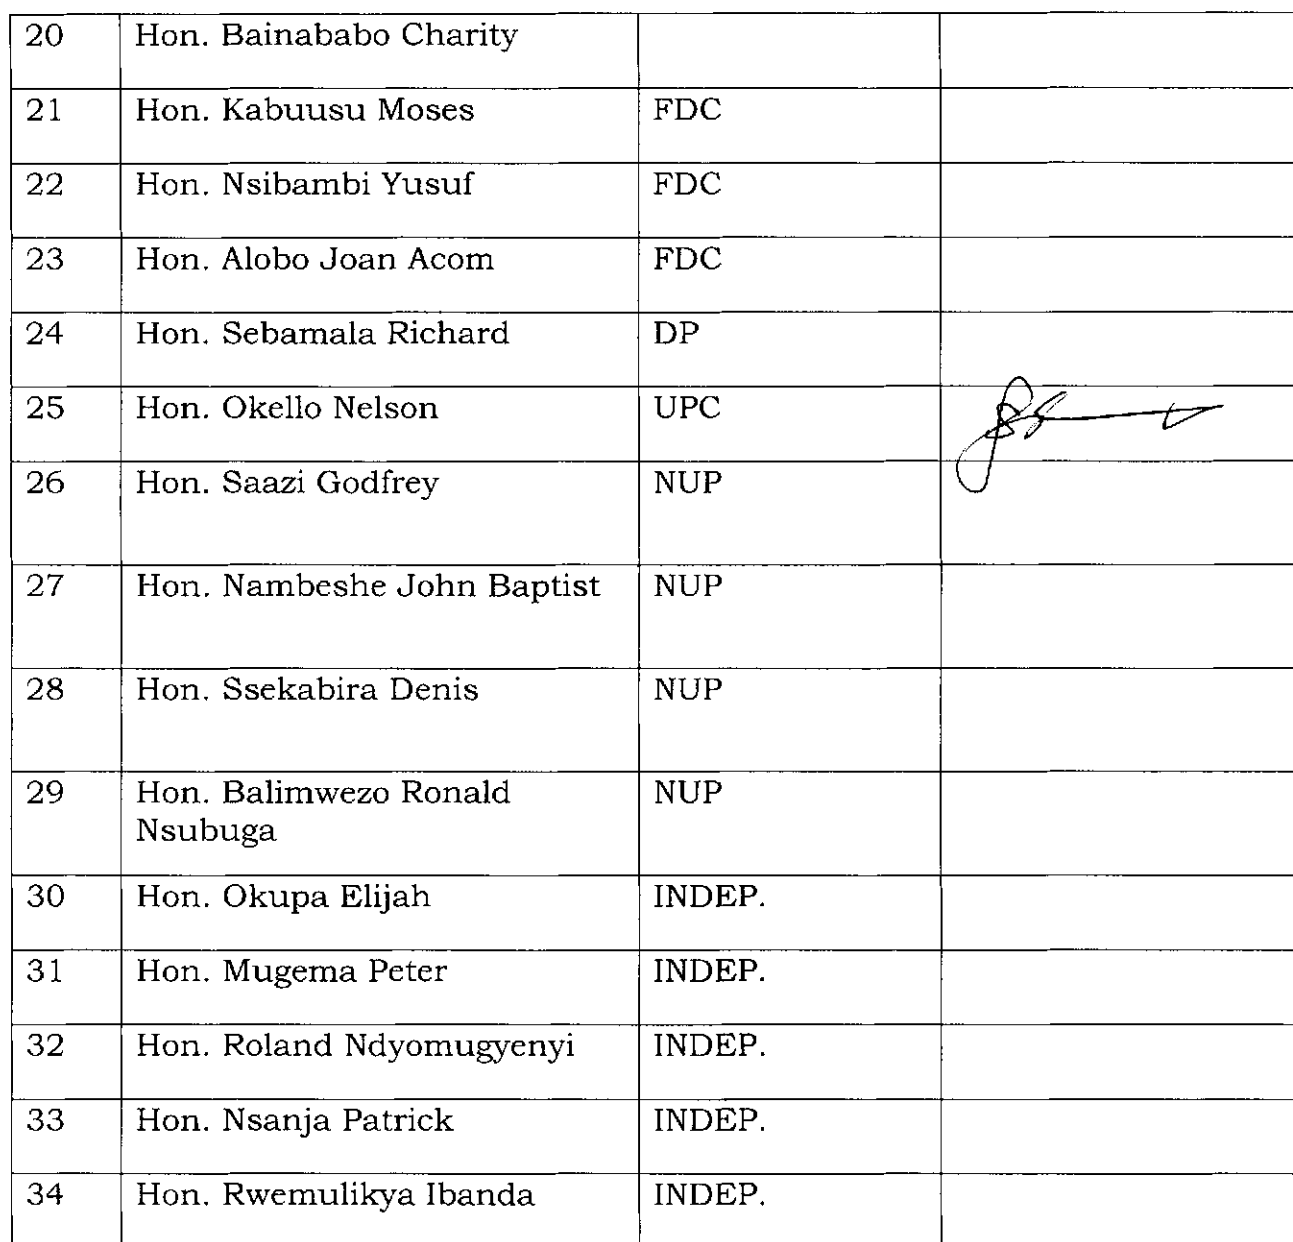 20 Hon. Bainababo Charity
21 Hon. Kabuusu Moses FDC
22 Hon. Nsibambi Yusuf FDC
23 Hon. Alobo Joan Acom FDC
24 Hon. Sebamala Richard DP
25 Hon. Okello Nelson UPC
26 Hon. Saazi Godfrey NUP
27 Hon. Nambeshe John Baptist NUP
28 Hon. Ssekabira Denis NUP
29 Hon. Balimwezo Ronald NUP
Nsubuga
30 Hon. Okupa Elijah INDEP.
31 Hon. Mugema Peter INDEP.
32 Hon. Roland Ndyomugyenyi INDEP.
33 Hon. Nsanja Patrick INDEP.
34 Hon. Rwemulikya Ibanda INDEP.